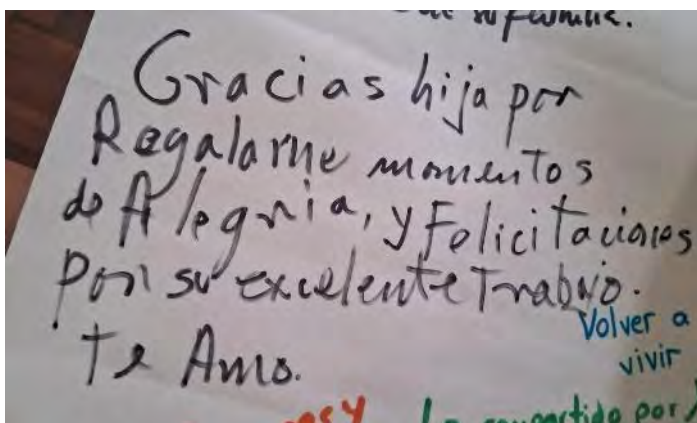 su familia.
Gracias hija por
Regalarme momentos
de Alegria, y Felicitaciones
Por su excelente Trabajo.
te Amo.
Volver a
vivir
compartido por